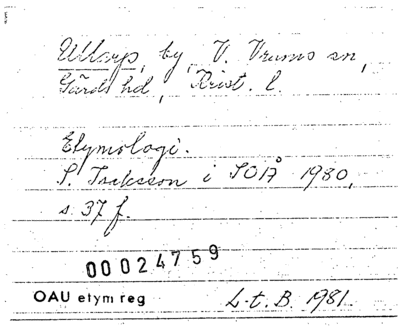 Ullarp, by, V. Vrams sn,
Gärds hd, Krist. l.
Etymologi.
S. Isaksson i SOÅ 1980,
s. 37 f.
00024759
OAU etym reg L-t. B. 1981.